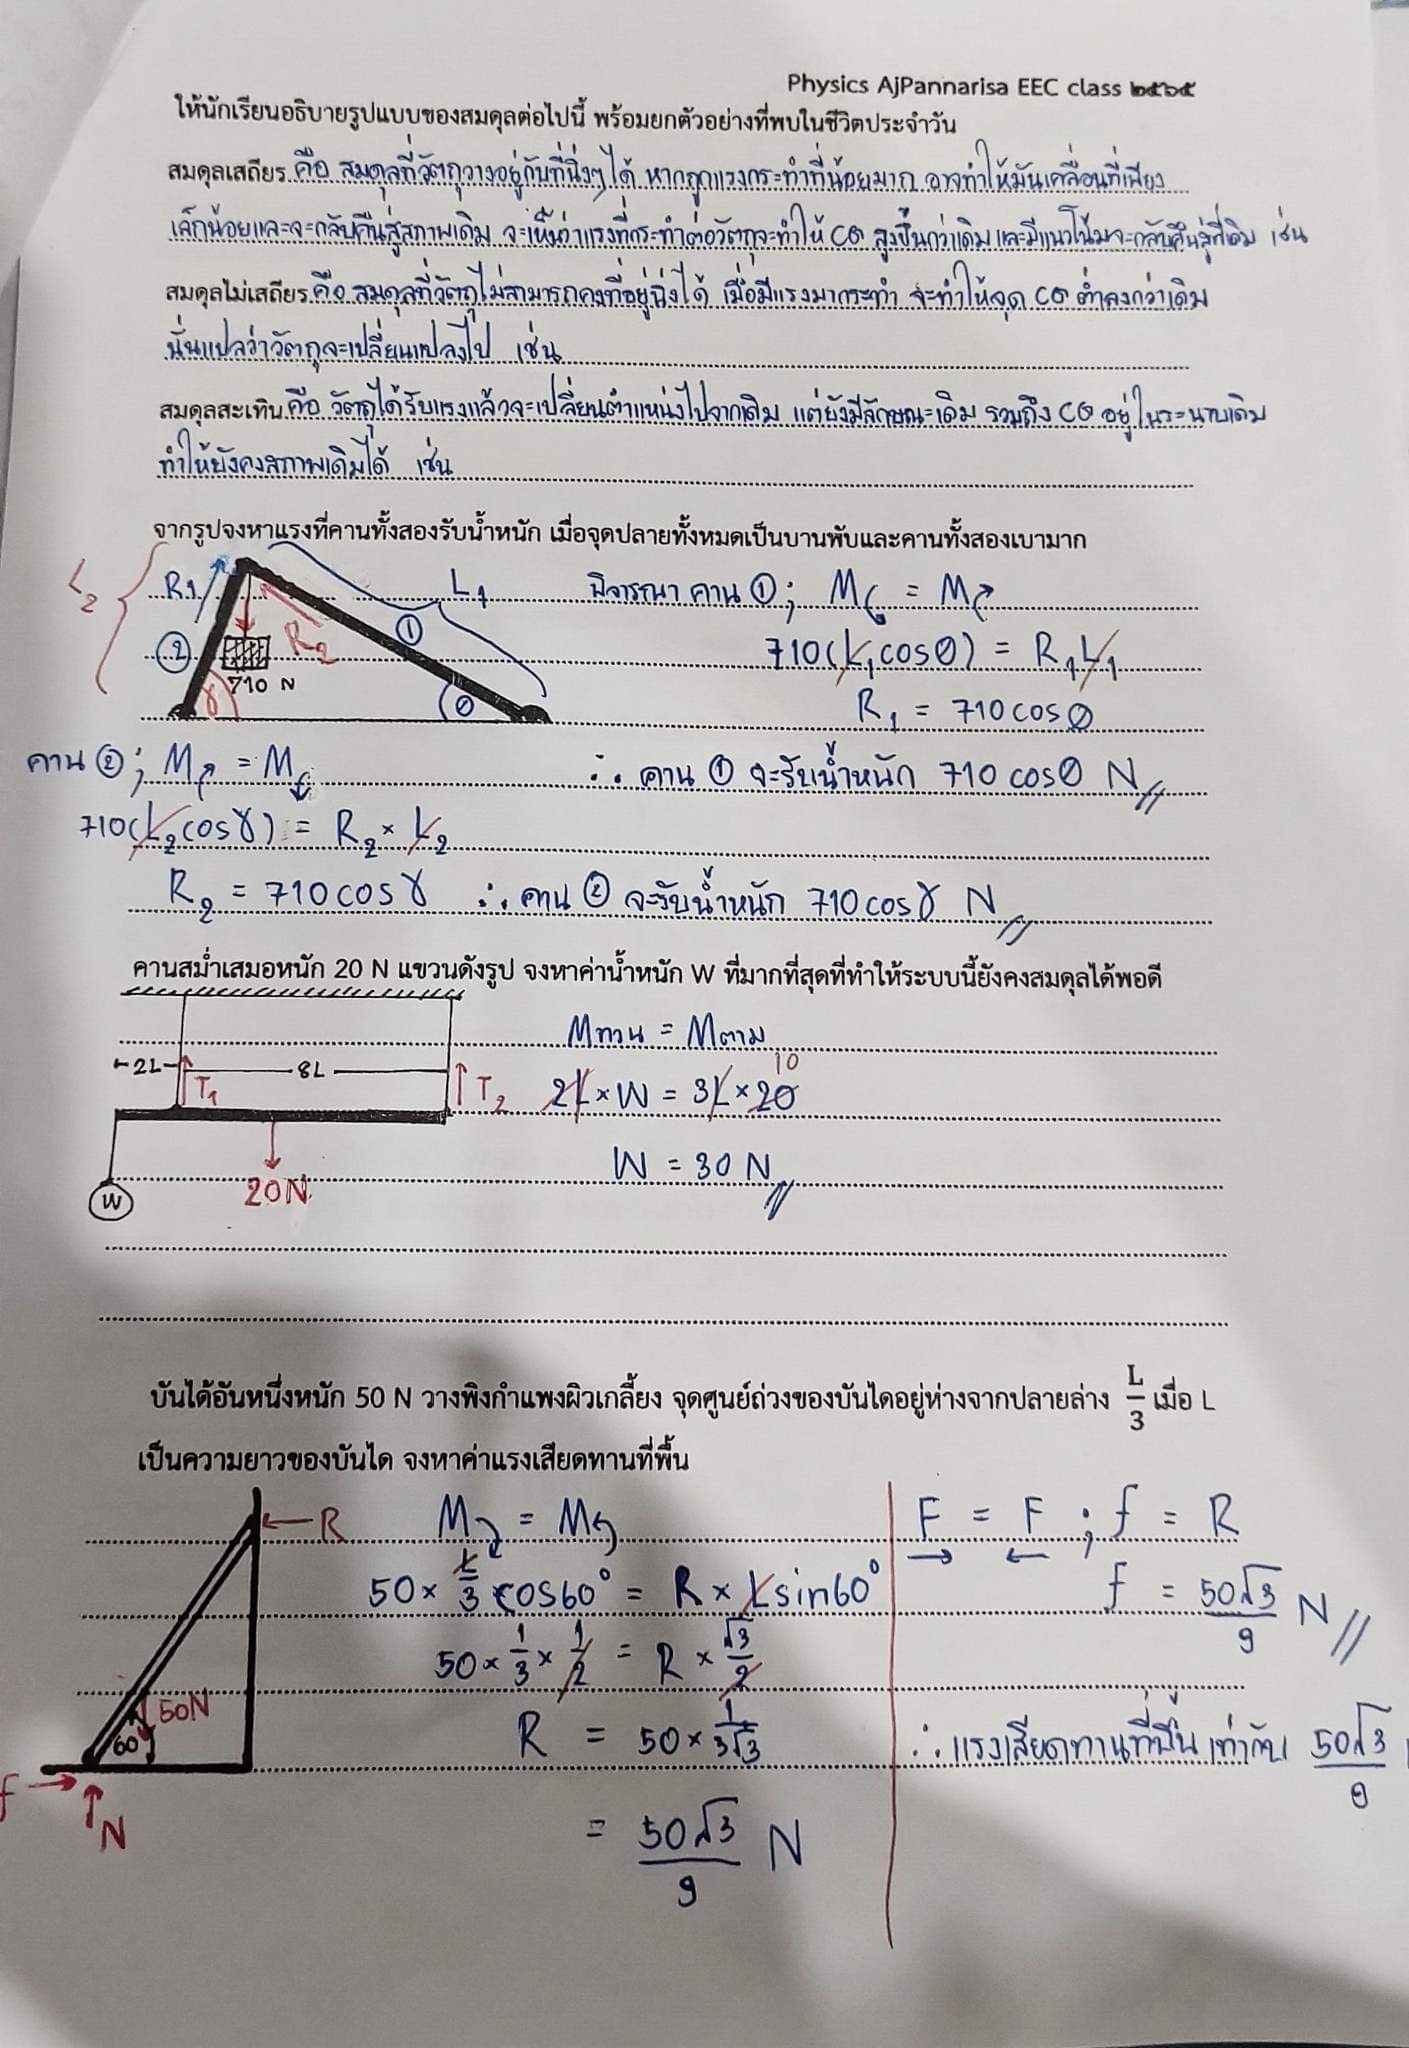 Physics AjPannarisa EEC class ๒๕๖๕
ให้นักเรียนอธิบายรูปแบบของสมดุลต่อไปนี้ พร้อมยกตัวอย่างที่พบในชีวิตประจำวัน
สมดุลเสถียร คือ สมดุลที่วัตถุวางอยู่กับที่นิ่งๆได้ หากถูกแรงกระทำที่น้อยมาก อาจทำให้มันเคลื่อนที่เพียง
เล็กน้อยและจะกลับคืนสู่สภาพเดิม จะเห็นว่าแรงที่กระทำต่อวัตถุจะทำให้ CG สูงขึ้นกว่าเดิม และมีแนวโน้มจะกลับคืนสู่ที่เดิม เช่น
สมดุลไม่เสถียร คือ สมดุลที่วัตถุไม่สามารถคงที่อยู่นิ่งได้ เมื่อมีแรงมากระทำ จะทำให้จุด CG ต่ำลงกว่าเดิม
นั่นแปลว่าวัตถุจะเปลี่ยนแปลงไป เช่น
สมดุลสะเทิน คือ วัตถุได้รับแรงแล้วจะเปลี่ยนตำแหน่งไปจากเดิม แต่ยังมีลักษณะเดิม รวมถึง CG อยู่ในระนาบเดิม
ทำให้ยังคงสภาพเดิมได้ เช่น
จากรูปจงหาแรงที่คานทั้งสองรับน้ำหนัก เมื่อจุดปลายทั้งหมดเป็นบานพับและคานทั้งสองเบามาก
L₂ R₁ L₁ พิจารณา คาน ① ; M↺ = M↻
② R₂ ① 710(L₁cosθ) = R₁L₁
710 N γ θ R₁ = 710cosθ
คาน ② ; M↻ = M↺ ∴ คาน ① จะรับน้ำหนัก 710 cosθ N
710(L₂cosγ) = R₂ × L₂
R₂ = 710cosγ ∴ คาน ② จะรับน้ำหนัก 710cosγ N
คานสม่ำเสมอหนัก 20 N แขวนดังรูป จงหาค่าน้ำหนัก W ที่มากที่สุดที่ทำให้ระบบนี้ยังคงสมดุลได้พอดี
Mทวน = Mตาม
2L 8L 10
T₁ T₂ 2L × W = 3L × 20
W = 30 N
W 20N
บันได้อันหนึ่งหนัก 50 N วางพิงกำแพงผิวเกลี้ยง จุดศูนย์ถ่วงของบันไดอยู่ห่างจากปลายล่าง L/3 เมื่อ L
เป็นความยาวของบันได จงหาค่าแรงเสียดทานที่พื้น
R M↻ = M↺ F→ = F← ; f = R
50 × L/3 cos60° = R × Lsin60° f = 50√3/9 N
50 × 1/3 × 1/2 = R × √3/2
50N 60° R = 50 × 1/3√3 ∴ แรงเสียดทานที่พื้น เท่ากับ 50√3/9
f N = 50√3/9 N